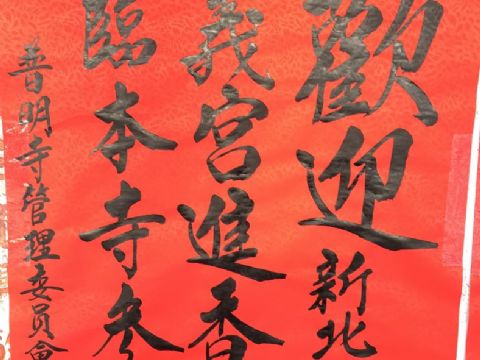 歡迎新北
義宮進香
臨本寺參
普明寺管理委員會